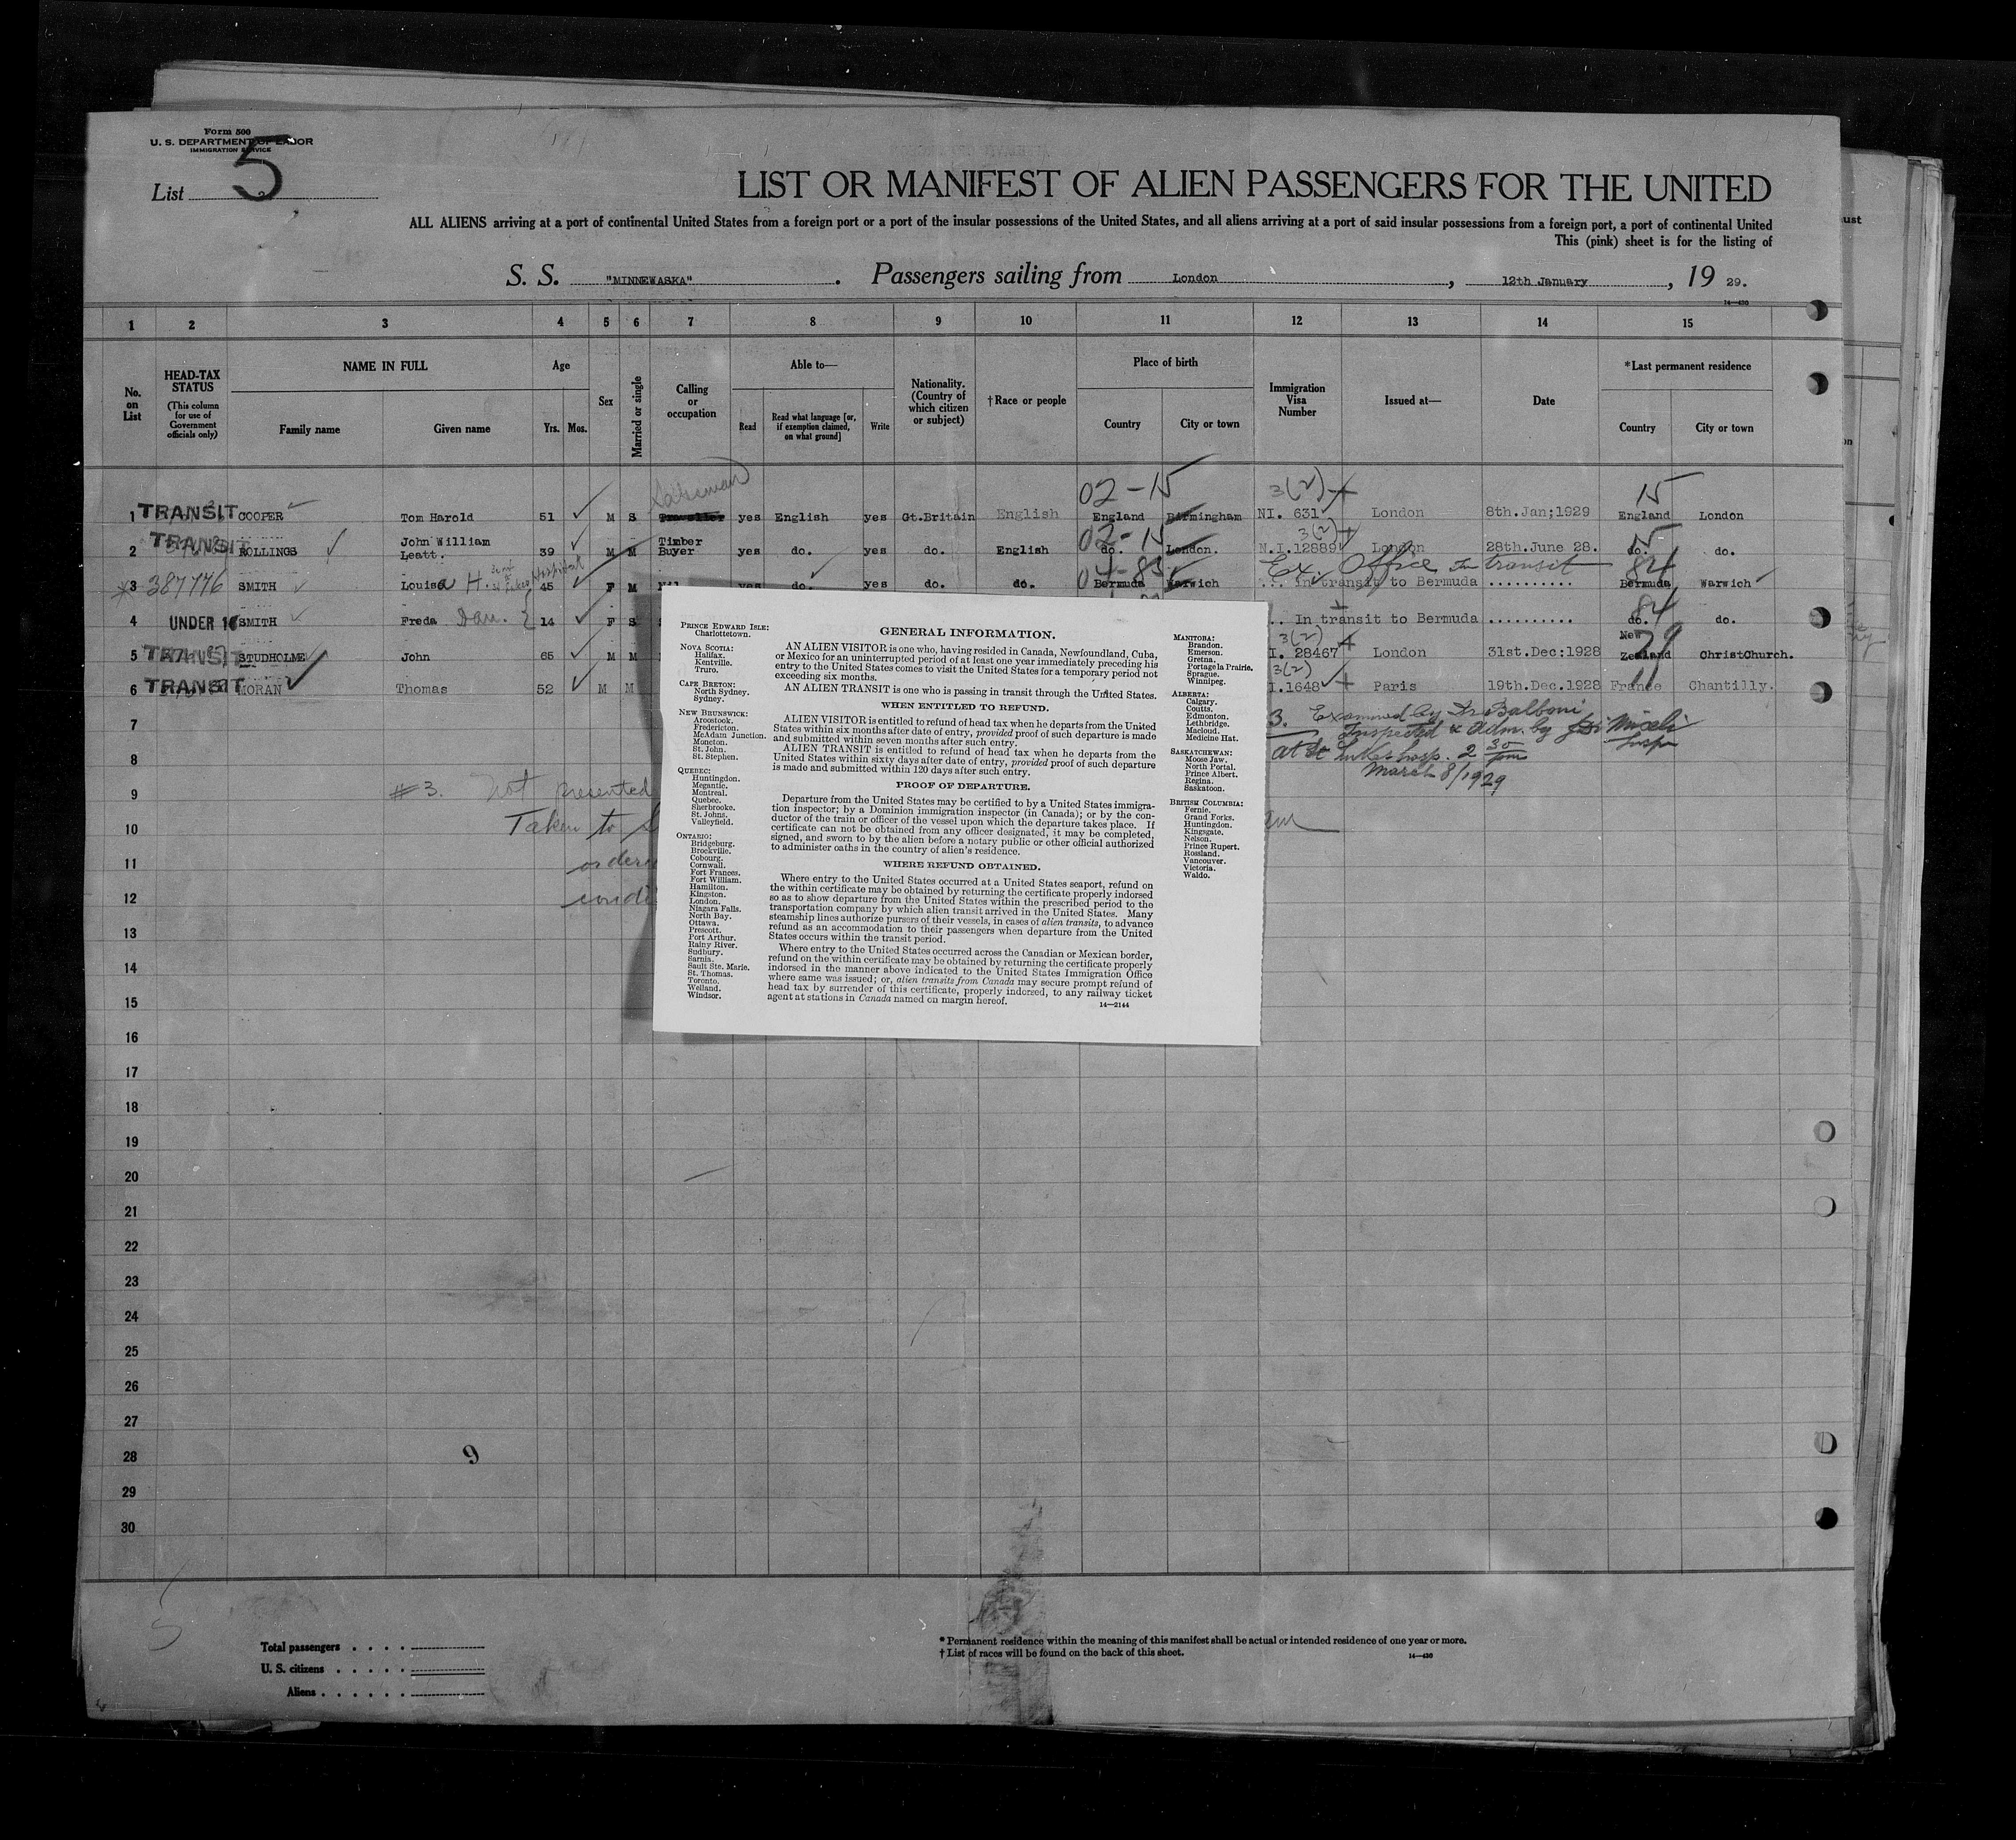 Form 500
U. S. DEPARTMENT OF LABOR
IMMIGRATION SERVICE
List 5
LIST OR MANIFEST OF ALIEN PASSENGERS FOR THE UNITED
ALL ALIENS arriving at a port of continental United States from a foreign port or a port of the insular possessions of the United States, and all aliens arriving at a port of said insular possessions from a foreign port, a port of continental United
This (pink) sheet is for the listing of
S. S. "MINNEWASKA". Passengers sailing from London, 12th January, 19 29.
14—430
1 2 3 4 5 6 7 8 9 10 11 12 13 14 15
No. on List
HEAD-TAX STATUS (This column for use of Government officials only)
NAME IN FULL Family name Given name
Age Yrs. Mos.
Sex
Married or single
Calling or occupation
Able to— Read Read what language [or, if exemption claimed, on what ground] Write
Nationality. (Country of which citizen or subject)
† Race or people
Place of birth Country City or town
Immigration Visa Number
Issued at—
Date
*Last permanent residence Country City or town
Salesman 02-15 3(2) 15
1 TRANSIT COOPER Tom Harold 51 M S yes English yes Gt.Britain English England Birmingham NI. 631. London 8th.Jan;1929 England London
02-15 3(2) 15
2 TRANSIT ROLLINGS John William Leatt. 39 M M Timber Buyer yes do. yes do. English do. London. N.I.12889 London 28th.June 28. do. do.
Ex. Office In transit 84
3 387776 SMITH Louisa H. 45 F M Nil yes do. yes do. do. Bermuda Warwich In transit to Bermuda .......... Bermuda Warwich
84
4 UNDER 16 SMITH Freda Dau. 14 F S .. In transit to Bermuda .......... do. do.
3(2) 79
5 TRANSIT STUDHOLME John 65 M M I. 28467 London 31st.Dec:1928 New Zealand ChristChurch.
3(2) 11
6 TRANSIT MORAN Thomas 52 M M I.1648 Paris 19th.Dec.1928 France Chantilly.
7
3. Examined by Dr Balboni
Inspected & Adm. by
8
at St Lukes hosp. 2 30 pm
March 8/1929
9
#3. Not presented
10
Taken to
11
12
13
14
15
16
17
18
19
20
21
22
23
24
25
26
27
28
9
29
30
PRINCE EDWARD ISLE:
Charlottetown.
NOVA SCOTIA:
Halifax.
Kentville.
Truro.
CAPE BRETON:
North Sydney.
Sydney.
NEW BRUNSWICK:
Aroostook.
Fredericton.
McAdam Junction.
Moncton.
St. John.
St. Stephen.
QUEBEC:
Huntingdon.
Megantic.
Montreal.
Quebec.
Sherbrooke.
St. Johns.
Valleyfield.
ONTARIO:
Bridgeburg.
Brockville.
Cobourg.
Cornwall.
Fort Frances.
Fort William.
Hamilton.
Kingston.
London.
Niagara Falls.
North Bay.
Ottawa.
Prescott.
Port Arthur.
Rainy River.
Sudbury.
Sarnia.
Sault Ste. Marie.
St. Thomas.
Toronto.
Welland.
Windsor.
GENERAL INFORMATION.
AN ALIEN VISITOR is one who, having resided in Canada, Newfoundland, Cuba,
or Mexico for an uninterrupted period of at least one year immediately preceding his
entry to the United States comes to visit the United States for a temporary period not
exceeding six months.
AN ALIEN TRANSIT is one who is passing in transit through the United States.
WHEN ENTITLED TO REFUND.
ALIEN VISITOR is entitled to refund of head tax when he departs from the United
States within six months after date of entry, provided proof of such departure is made
and submitted within seven months after such entry.
ALIEN TRANSIT is entitled to refund of head tax when he departs from the
United States within sixty days after date of entry, provided proof of such departure
is made and submitted within 120 days after such entry.
PROOF OF DEPARTURE.
Departure from the United States may be certified to by a United States immigra-
tion inspector; by a Dominion immigration inspector (in Canada); or by the con-
ductor of the train or officer of the vessel upon which the departure takes place. If
certificate can not be obtained from any officer designated, it may be completed,
signed, and sworn to by the alien before a notary public or other official authorized
to administer oaths in the country of alien's residence.
WHERE REFUND OBTAINED.
Where entry to the United States occurred at a United States seaport, refund on
the within certificate may be obtained by returning the certificate properly indorsed
so as to show departure from the United States within the prescribed period to the
transportation company by which alien transit arrived in the United States. Many
steamship lines authorize pursers of their vessels, in cases of alien transits, to advance
refund as an accommodation to their passengers when departure from the United
States occurs within the transit period.
Where entry to the United States occurred across the Canadian or Mexican border,
refund on the within certificate may be obtained by returning the certificate properly
indorsed in the manner above indicated to the United States Immigration Office
where same was issued; or, alien transits from Canada may secure prompt refund of
head tax by surrender of this certificate, properly indorsed, to any railway ticket
agent at stations in Canada named on margin hereof.
14—2144
MANITOBA:
Brandon.
Emerson.
Gretna.
Portage la Prairie.
Sprague.
Winnipeg.
ALBERTA:
Calgary.
Coutts.
Edmonton.
Lethbridge.
Macloud.
Medicine Hat.
SASKATCHEWAN:
Moose Jaw.
North Portal.
Prince Albert.
Regina.
Saskatoon.
BRITISH COLUMBIA:
Fernie.
Grand Forks.
Huntingdon.
Kingsgate.
Nelson.
Prince Rupert.
Rossland.
Vancouver.
Victoria.
Waldo.
Total passengers
U. S. citizens
Aliens
* Permanent residence within the meaning of this manifest shall be actual or intended residence of one year or more.
† List of races will be found on the back of this sheet.
14—430